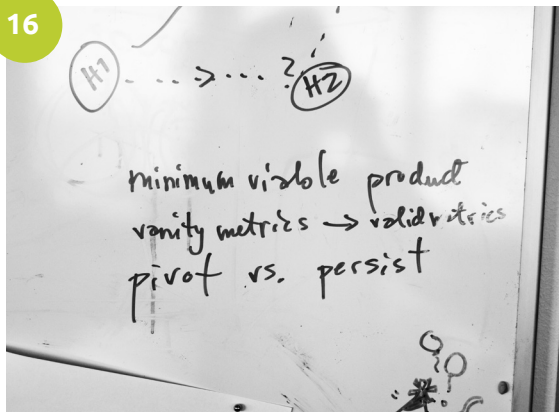 16
H1 ....>... ? H2
minimum viable product
vanity metrics → valid metrics
pivot vs. persist